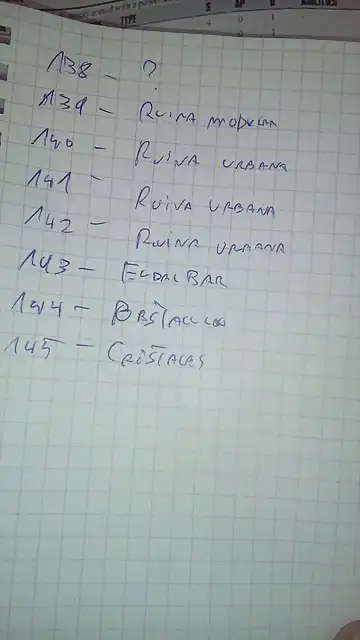 TYPE S AP D ABILITIES
138 - ?
139 - RUINA MODULAR
140 - RUINA URBANA
141 - RUINA URBANA
142 - RUINA URBANA
143 - BAR
144 - OBSTACULOS
145 - CRISTALES